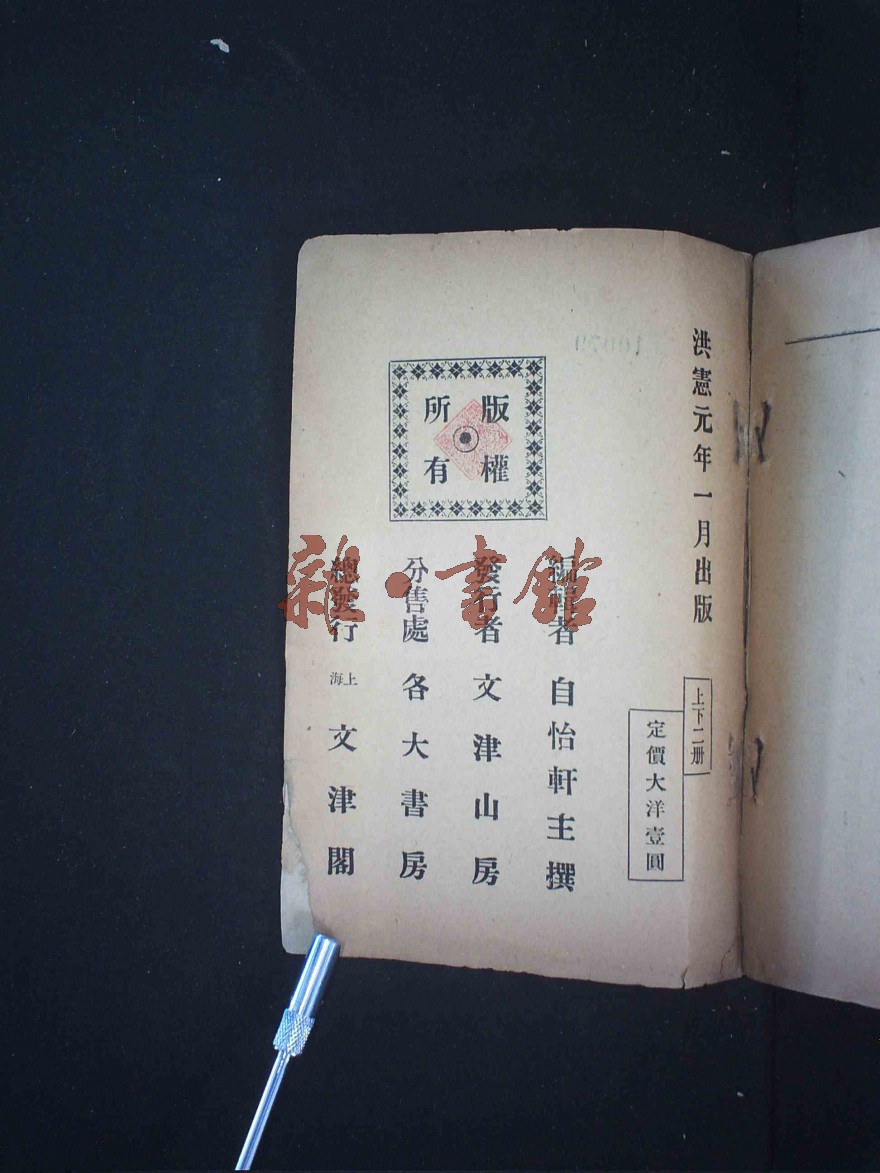 洪憲元年一月出版
上下二册
定價大洋壹圓
版權所有
編輯者 自怡軒主撰
發行者 文津山房
分售處 各大書房
總發行 上海 文津閣
雜·書館